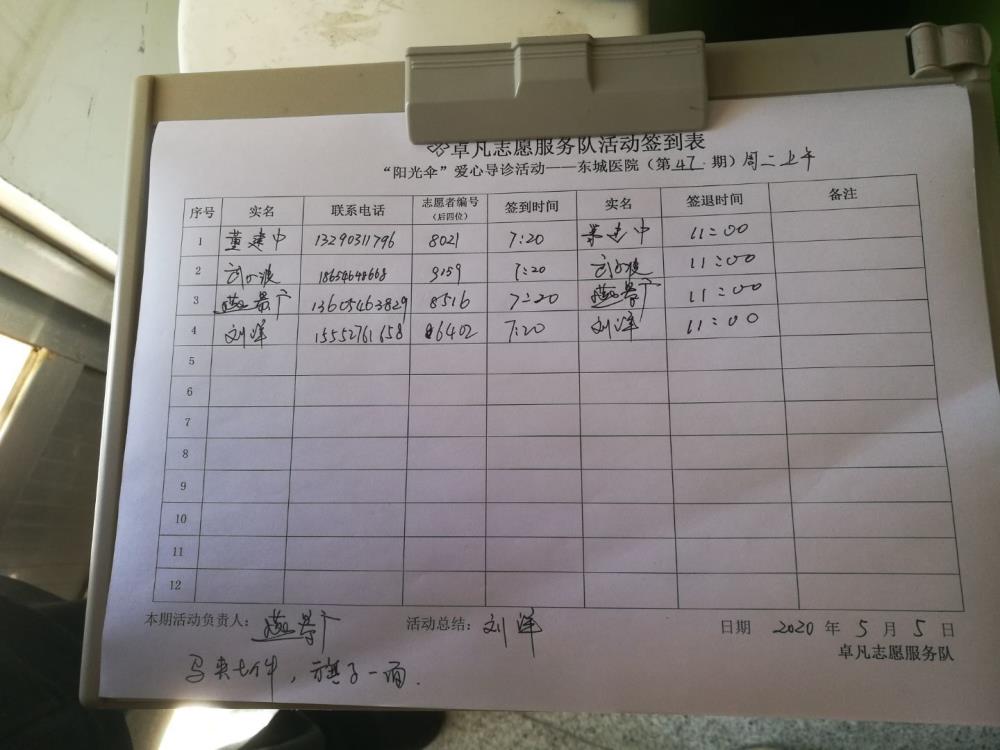 卓凡志愿服务队活动签到表
“阳光伞”爱心导诊活动——东城医院（第47期）周二上午
序号 实名 联系电话 志愿者编号（后四位） 签到时间 实名 签退时间 备注
1 董建中 13290311796 8021 7:20 董建中 11:00
2 18654648668 9159 7:20 11:00
3 燕景广 13605463829 8516 7:20 燕景广 11:00
4 刘洋 15552761658 6402 7:20 刘洋 11:00
5
6
7
8
9
10
11
12
本期活动负责人：燕景广 活动总结：刘洋 日期 2020 年 5 月 5 日
卓凡志愿服务队
马夹七件，旗子一面.